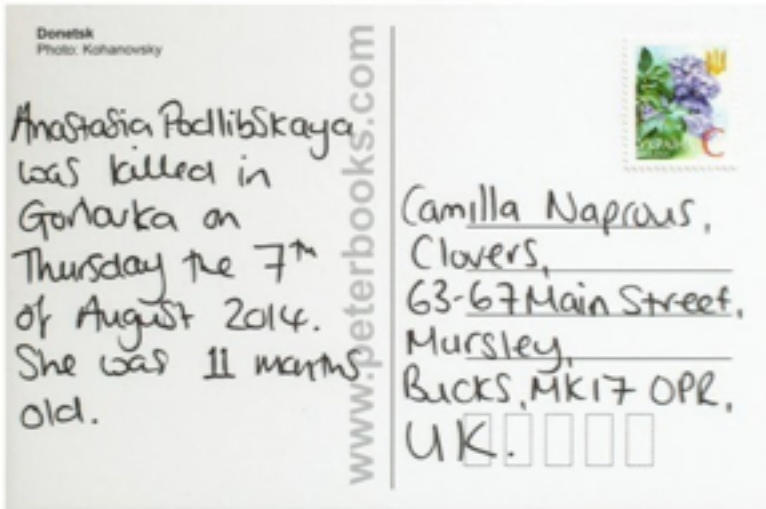 Donetsk
Photo: Kohanovsky
Anastasia Podlibskaya
was killed in
Gorlovka on
Thursday the 7th
of August 2014.
She was 11 months
old.
www.peterbooks.com
Camilla Naprous,
Clovers,
63-67 Main Street,
Mursley,
Bucks, MK17 0PR,
UK.